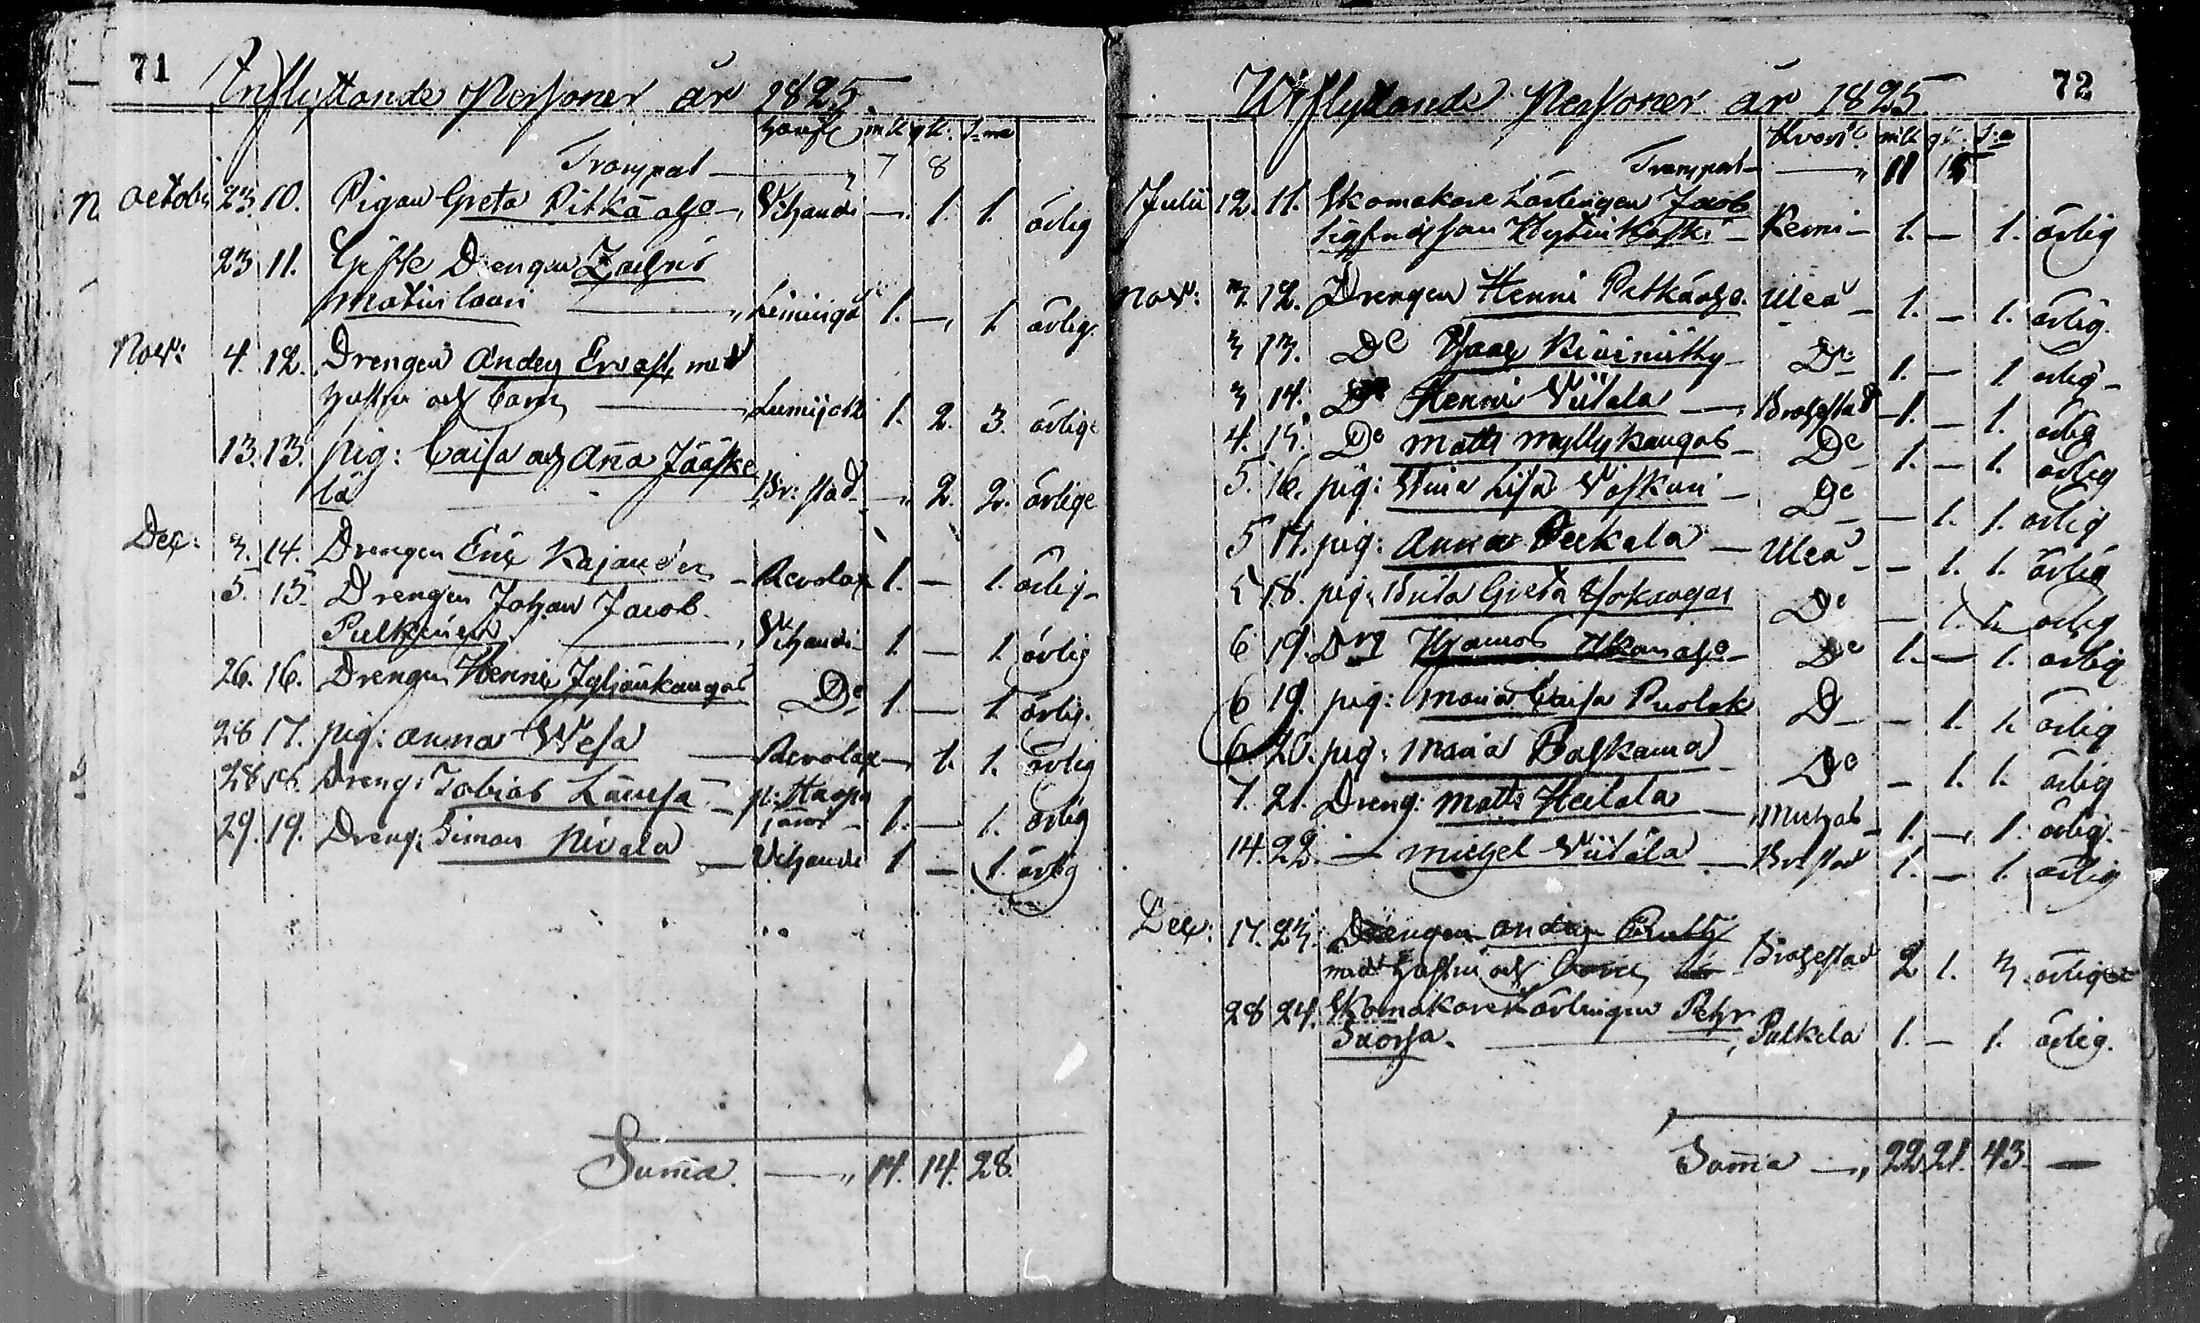 71
Inflyttande Personer år 1825.
hvarifr. mk. qk. S:ma
Transport 7 8
October 23. 10. Pigan Greta Pitkäaho Vihandi — 1. 1. ärlig
23 11. Gifte Drengen Zachris
Matinlauri Limingo 1. — 1. ärlig.
Nov: 4. 12. Drengen Anders Ervast med
hustru och barn Lumijoki 1. 2. 3. ärlige
13. 13. pig: Caisa och Aña Jääske
lä Br:stad — 2. 2. ärlige
Dec: 3. 14. Drengen Eric Kajander Revolax 1. — 1. ärlig
5. 15. Drengen Johan Jacob
Pulkinen Vihandi 1. — 1. ärlig
26. 16. Drengen Henric De 1. — 1. ärlig.
28 17. pig: Anna Wesa Revolax — 1. 1. ärlig
28 18. Dreng: Tobias Länsä p: Haapa
jarvi 1. — 1. ärlig
29. 19. Dreng: Simon Nivala Vihandi 1 — 1. ärlig
Suma. 14. 14. 28.
72
Utflyttande Personer år 1825
Hvart. mk qk. S:a
Transport 11 15
Julii 12. 11. Skomakare Lärlingen Jacob
Sigfridsson Kemi 1. — 1. ärlig
Nov: 3. 12. Drengen Henric Pitkäaho. Uleå 1. — 1. ärlig.
3 13. De Isaac Kiviniitty De 1. — 1 ärlig
3 14. De Henric Viitala Brahestad 1. — 1. ärlig
4. 15. De Matts Myllykangas De 1. — 1. ärlig
5. 16. pig: Lisa De — 1. 1. ärlig
5 17. pig: Anna Peckala Uleå — 1. 1. ärlig
5 18. pig: Brita Greta De — 1. 1. ärlig
6 19. Drg De 1. — 1. ärlig
6 19. pig: Maria Caisa D — 1. 1. ärlig
6. 20. pig: Maria Paskama De — 1. 1. ärlig
7. 21. Dreng: Matts Heilala 1. — 1. ärlig.
14. 22. — Michel Viitala Br:stad 1. — 1. ärlig
Dec: 17. 23. Drengen Anders
med hustru och barn Brahestad 2 1. 3. ärlige
28 24. Skomakare Lärlingen Pehr
Suorsa. Pulkila 1. — 1. ärlig.
Suma 22. 21. 43. —